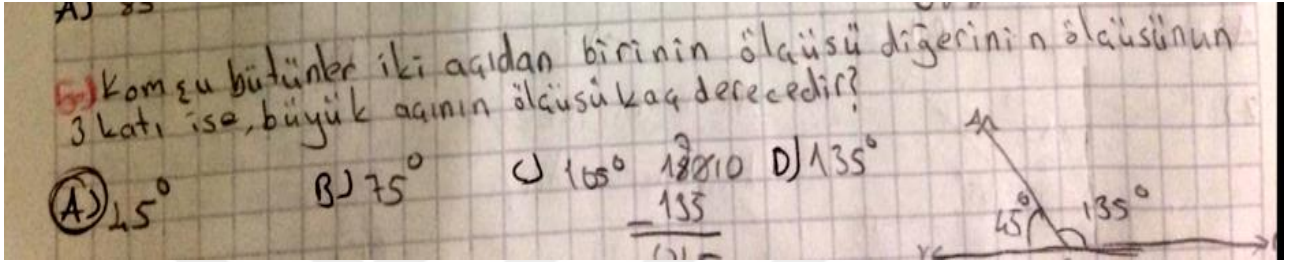 A) 85
5-) Komşu bütünler iki açıdan birinin ölçüsü diğerinin ölçüsünün
3 katı ise, büyük açının ölçüsü kaç derecedir?
A) 45° B) 75° C) 105° D) 135°
- 135
45° 135°